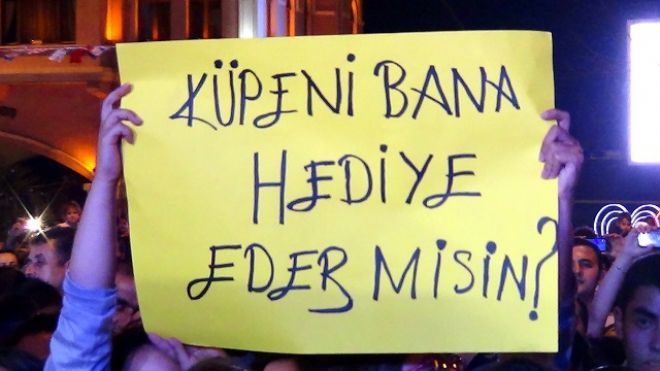 KÜPENİ BANA
HEDİYE
EDER MİSİN?